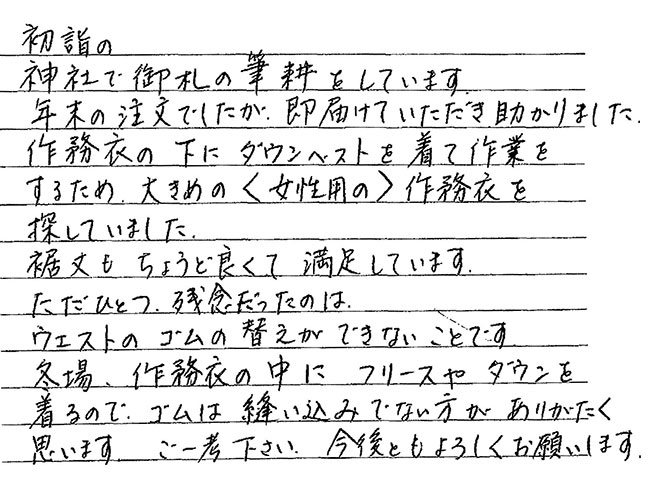 初詣の
神社で御札の筆耕をしています.
年末の注文でしたが、即届けていただき助かりました.
作務衣の下にダウンベストを着て作業を
するため、大きめの〈女性用の〉作務衣を
探していました.
裾丈もちょうど良くて満足しています.
ただひとつ、残念だったのは、
ウエストのゴムの替えができないことです
冬場、作務衣の中にフリースやダウンを
着るので、ゴムは縫い込みでない方がありがたく
思います. ご一考下さい. 今後ともよろしくお願いします.